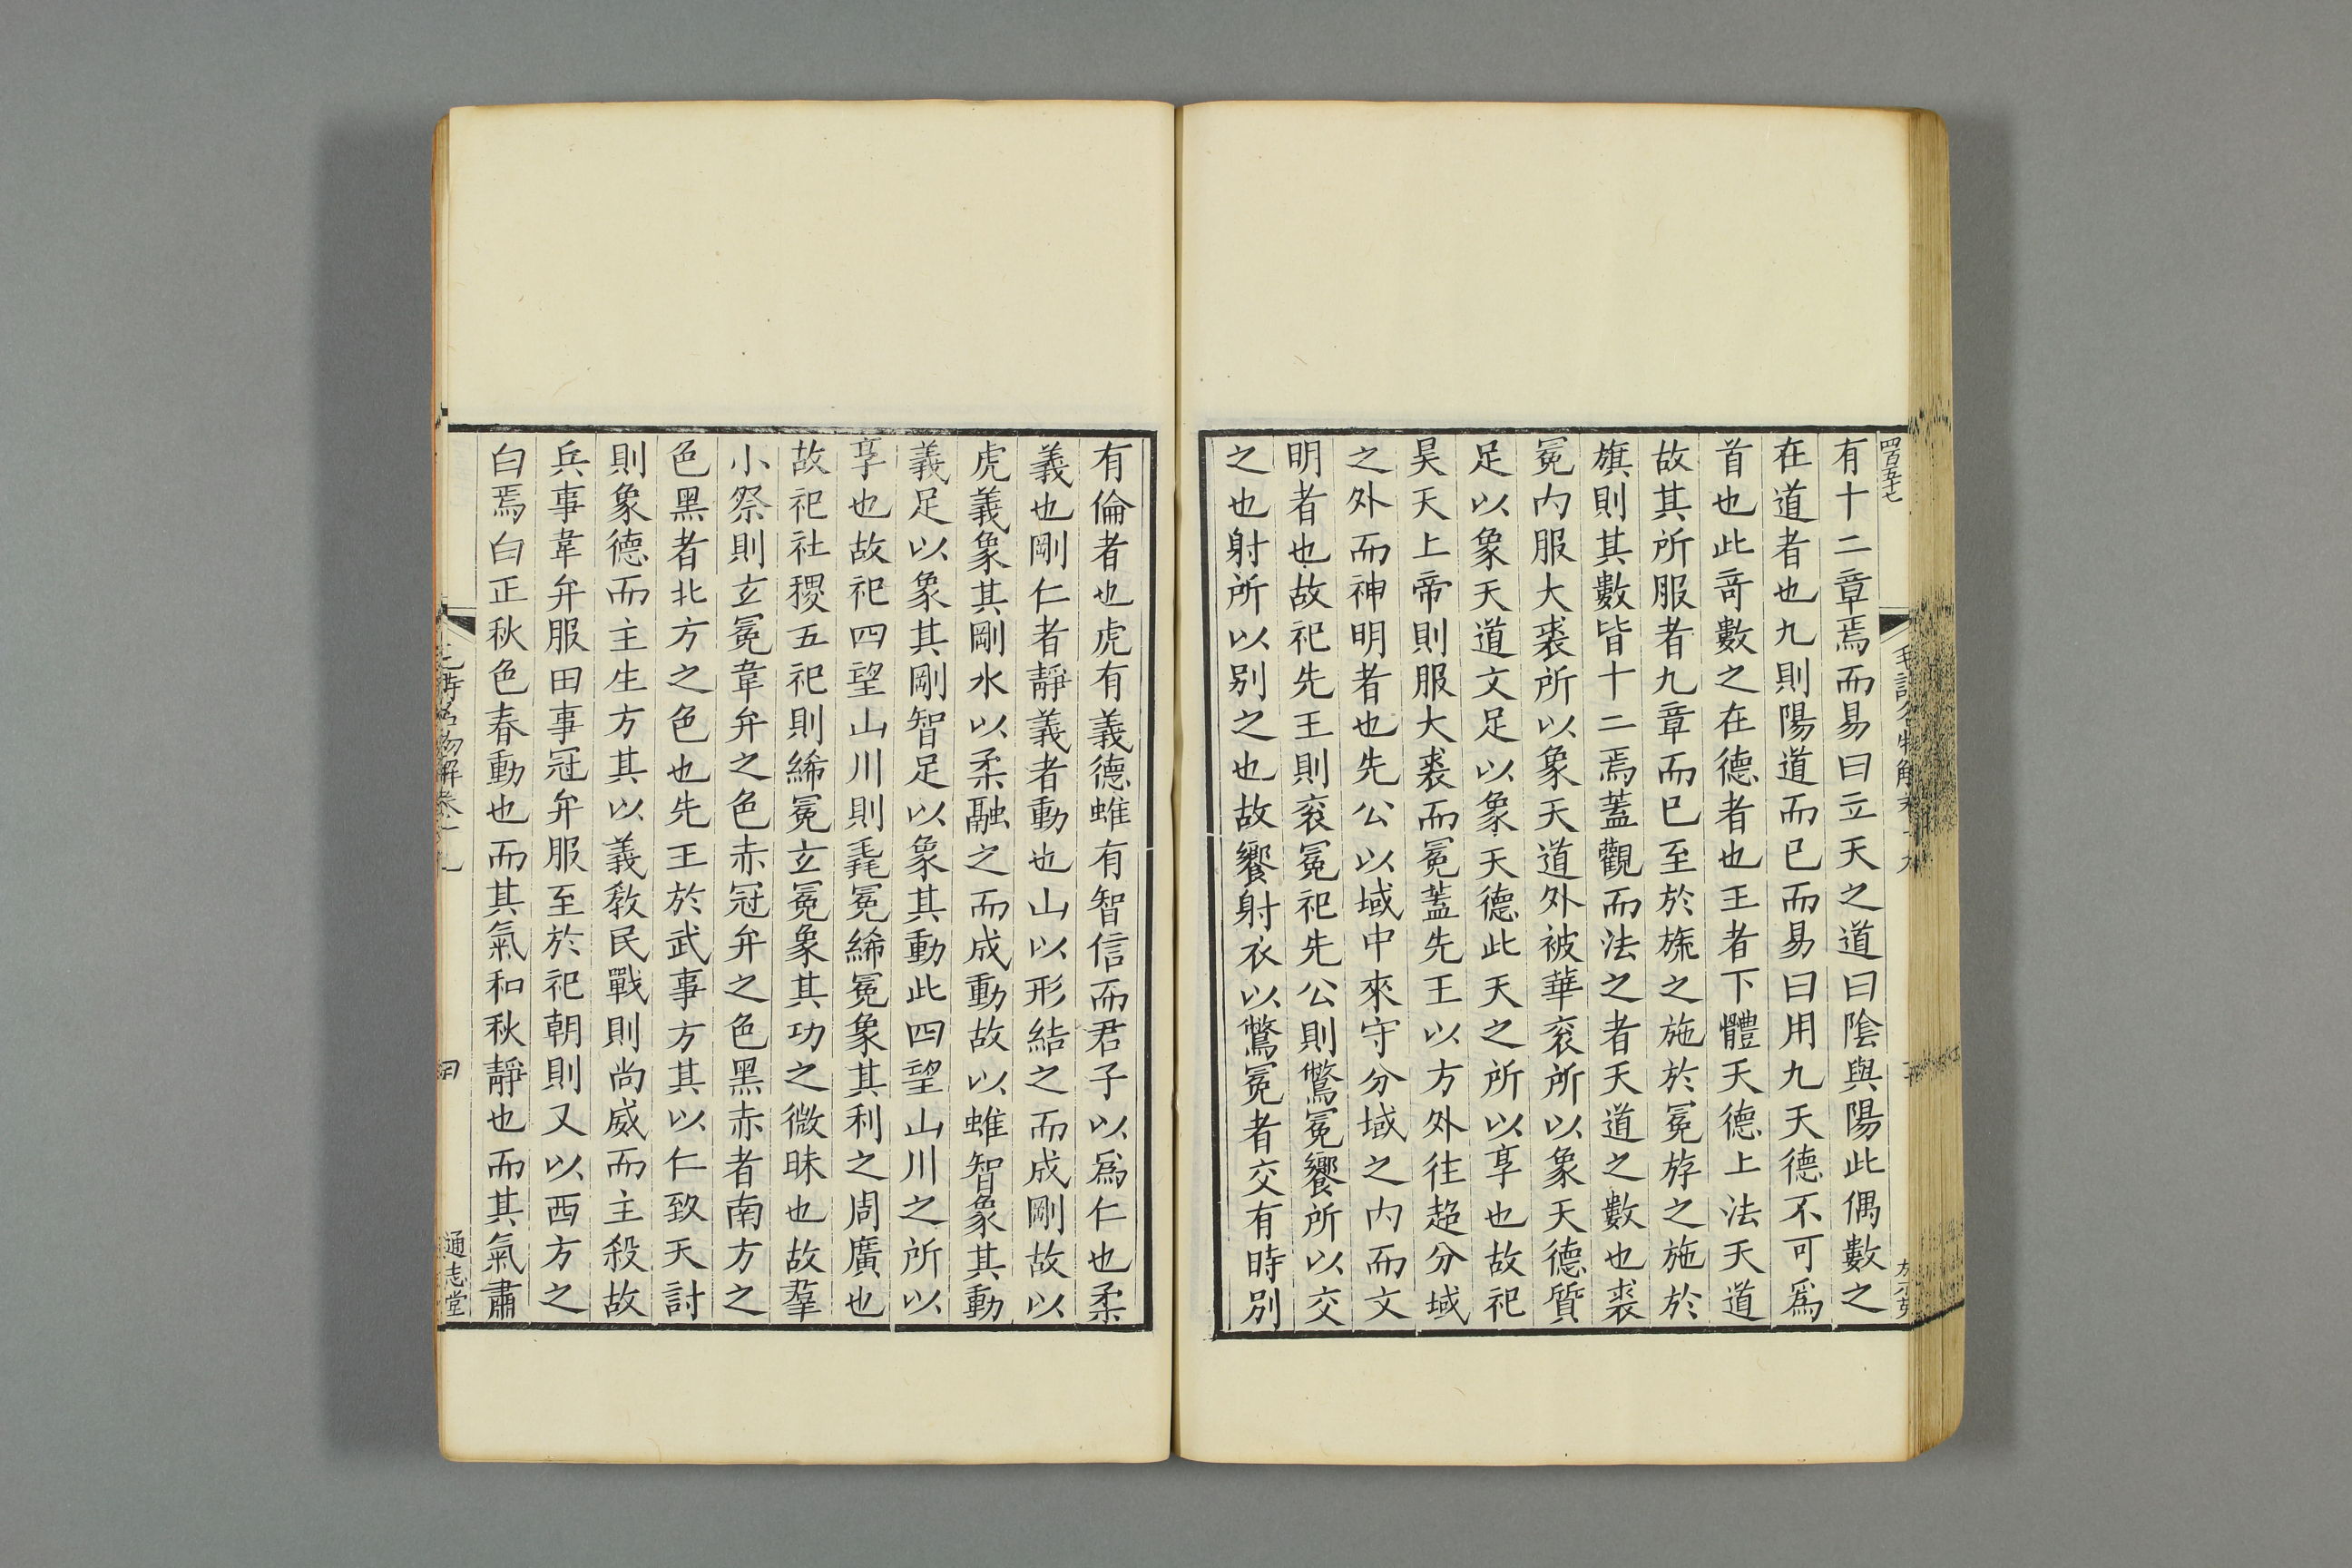 四百五十七
有十二章焉而易曰立天之道曰陰與陽此偶數之
在道者也九則陽道而已而易曰用九天德不可爲
首也此竒數之在德者也王者下體天德上法天道
故其所服者九章而已至於旂之施於冕斿之施於
旗則其數皆十二焉蓋觀而法之者天道之數也裘
冕内服大裘所以象天道外被華衮所以象天德質
足以象天道文足以象天德此天之所以享也故祀
昊天上帝則服大裘而冕蓋先王以方外往趨分域
之外而神明者也先公以域中來守分域之内而文
明者也故祀先王則衮冕祀先公則鷩冕饗所以交
之也射所以别之也故饗射衣以鷩冕者交有時别
有倫者也虎有義德蜼有智信而君子以爲仁也柔
義也剛仁者靜義者動也山以形結之而成剛故以
虎義象其剛水以柔融之而成動故以蜼智象其動
義足以象其剛智足以象其動此四望山川之所以
享也故祀四望山川則毳冕絺冕象其利之周廣也
故祀社稷五祀則絺冕玄冕象其功之微昧也故羣
小祭則玄冕韋弁之色赤冠弁之色黑赤者南方之
色黑者北方之色也先王於武事方其以仁致天討
則象德而主生方其以義敎民戰則尚威而主殺故
兵事韋弁服田事冠弁服至於祀朝則又以西方之
白焉白正秋色春動也而其氣和秋靜也而其氣肅
通志堂